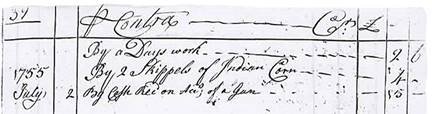 37 P Contra Cr £
By a Days work 2 6
1755 By 2 Skippels of Indian Corn 4 -
July 2 By Cash Rec on Acc of a Gun 15 -